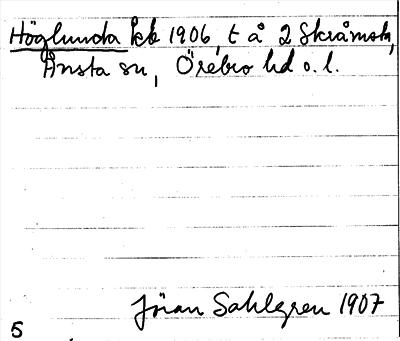 Höglunda kb 1906, t å 2 Skråmsta,
Ånsta sn, Örebro hd o. l.
Jöran Sahlgren 1907
5